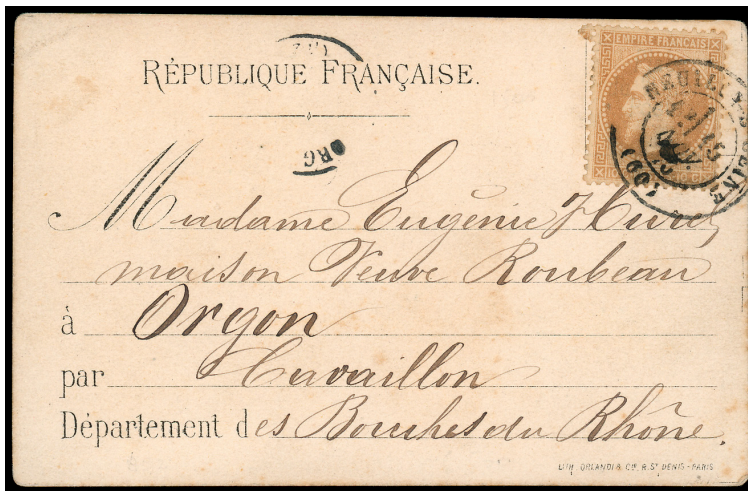 RÉPUBLIQUE FRANÇAISE.
EMPIRE FRANÇAIS
NEUILLY-S-SEINE
(60)
ORG
Madame Eugénie Huret
maison Veuve Roubeau
à Orgon
par Cavaillon
Département des Bouches du Rhône.
LITH. ORLANDI & Cie R. St DENIS-PARIS